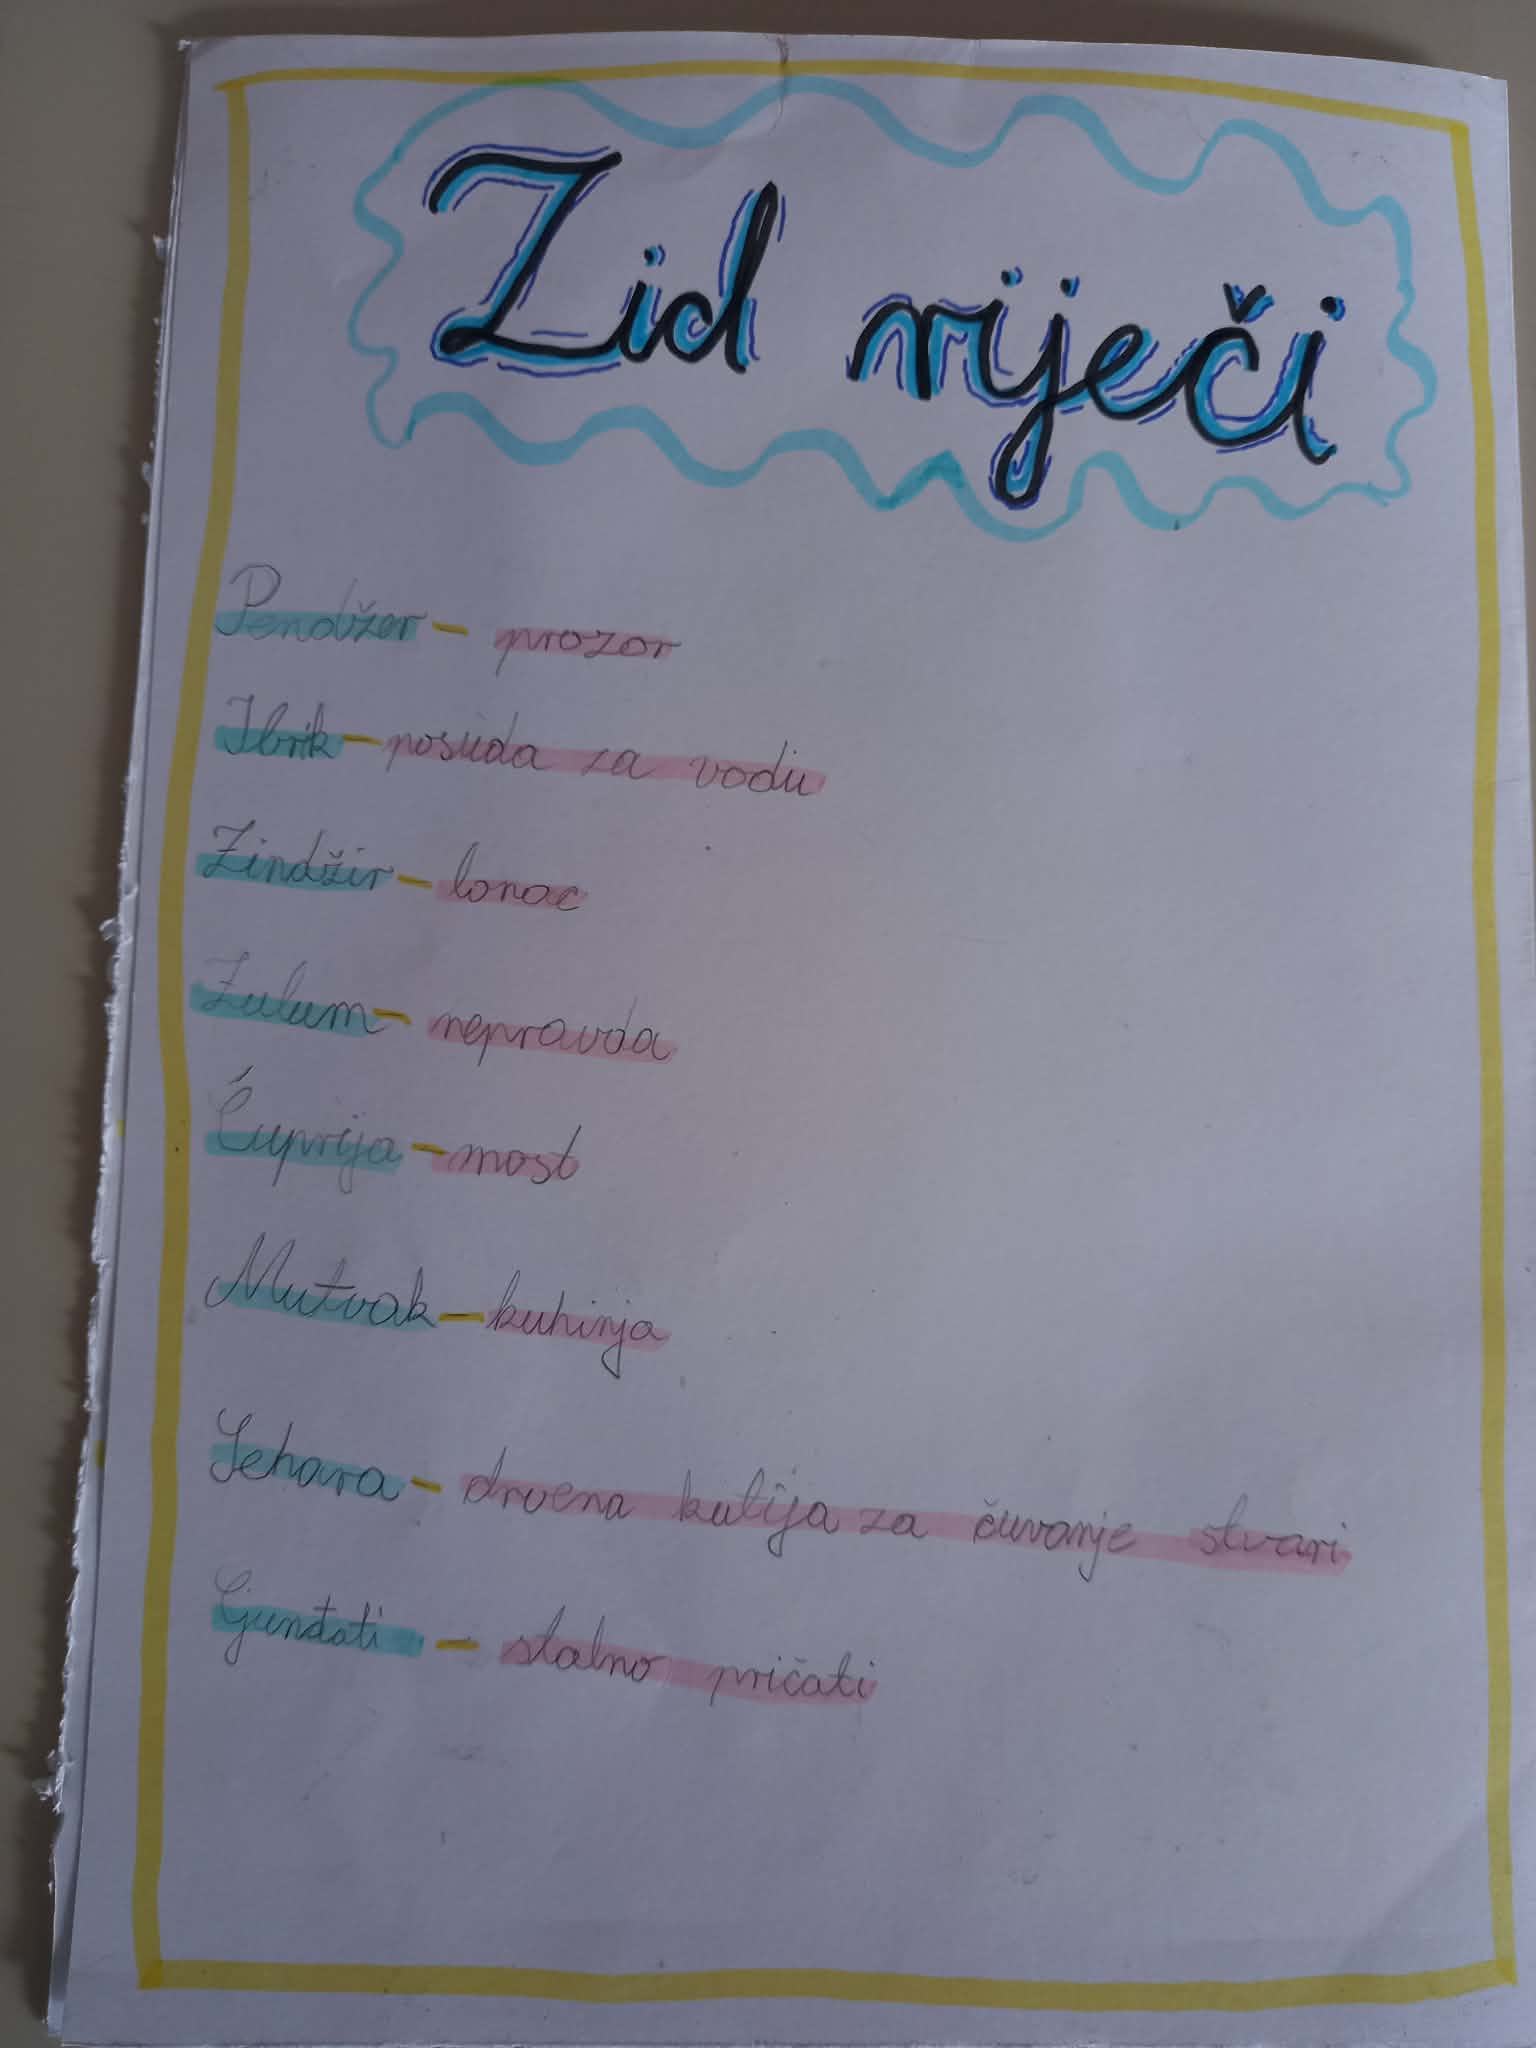 Zid riječi
Pendžer - prozor
Ibrik - posuda za vodu
Zindžir - lonac
Zulum - nepravda
Ćuprija - most
Mutvak - kuhinja
Sehara - drvena kutija za čuvanje stvari
Gjunđati - stalno pričati